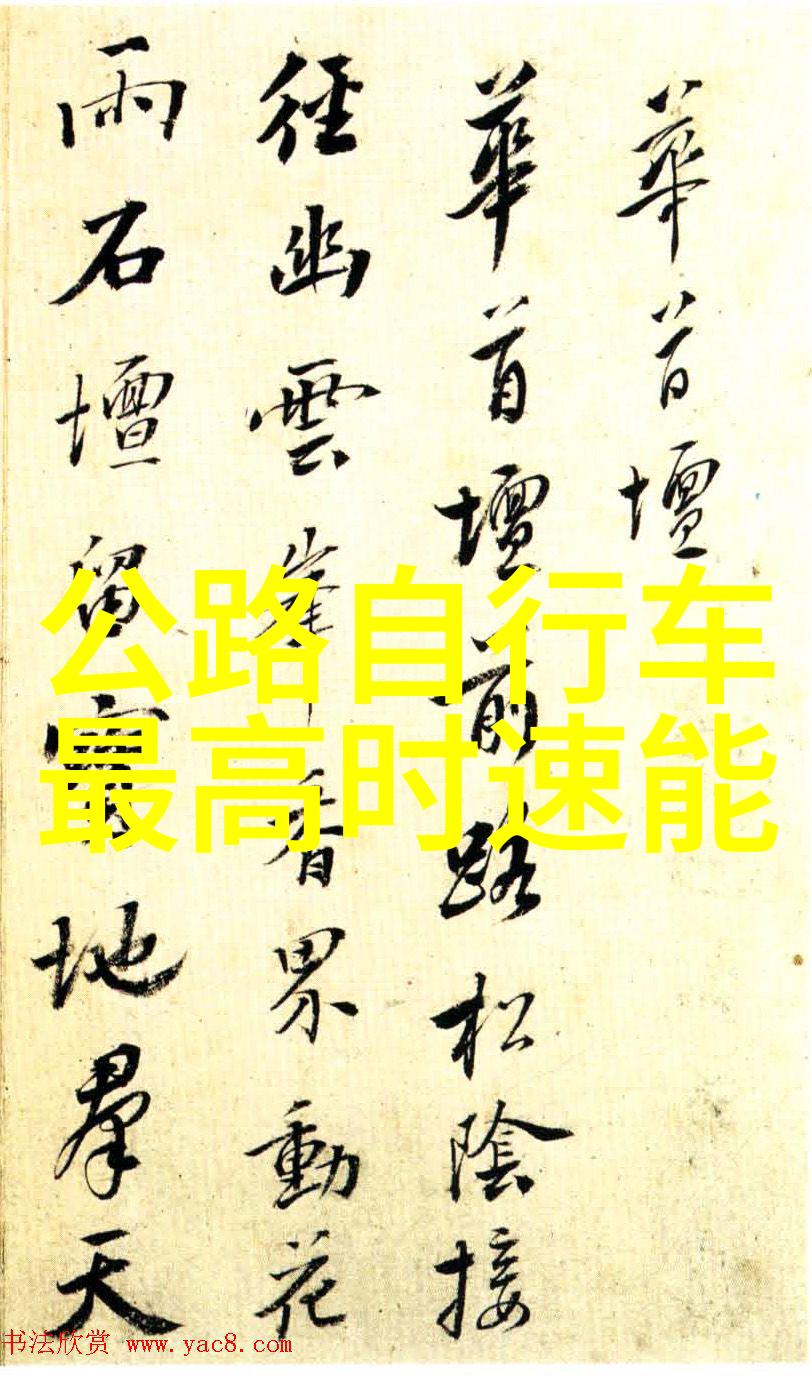 華首壇
華首壇前路松陰接
徑幽雲峯香界動花
雨石壇留寶地羣天
公路自行车
最高时速能
书法欣赏 www.yac8.com